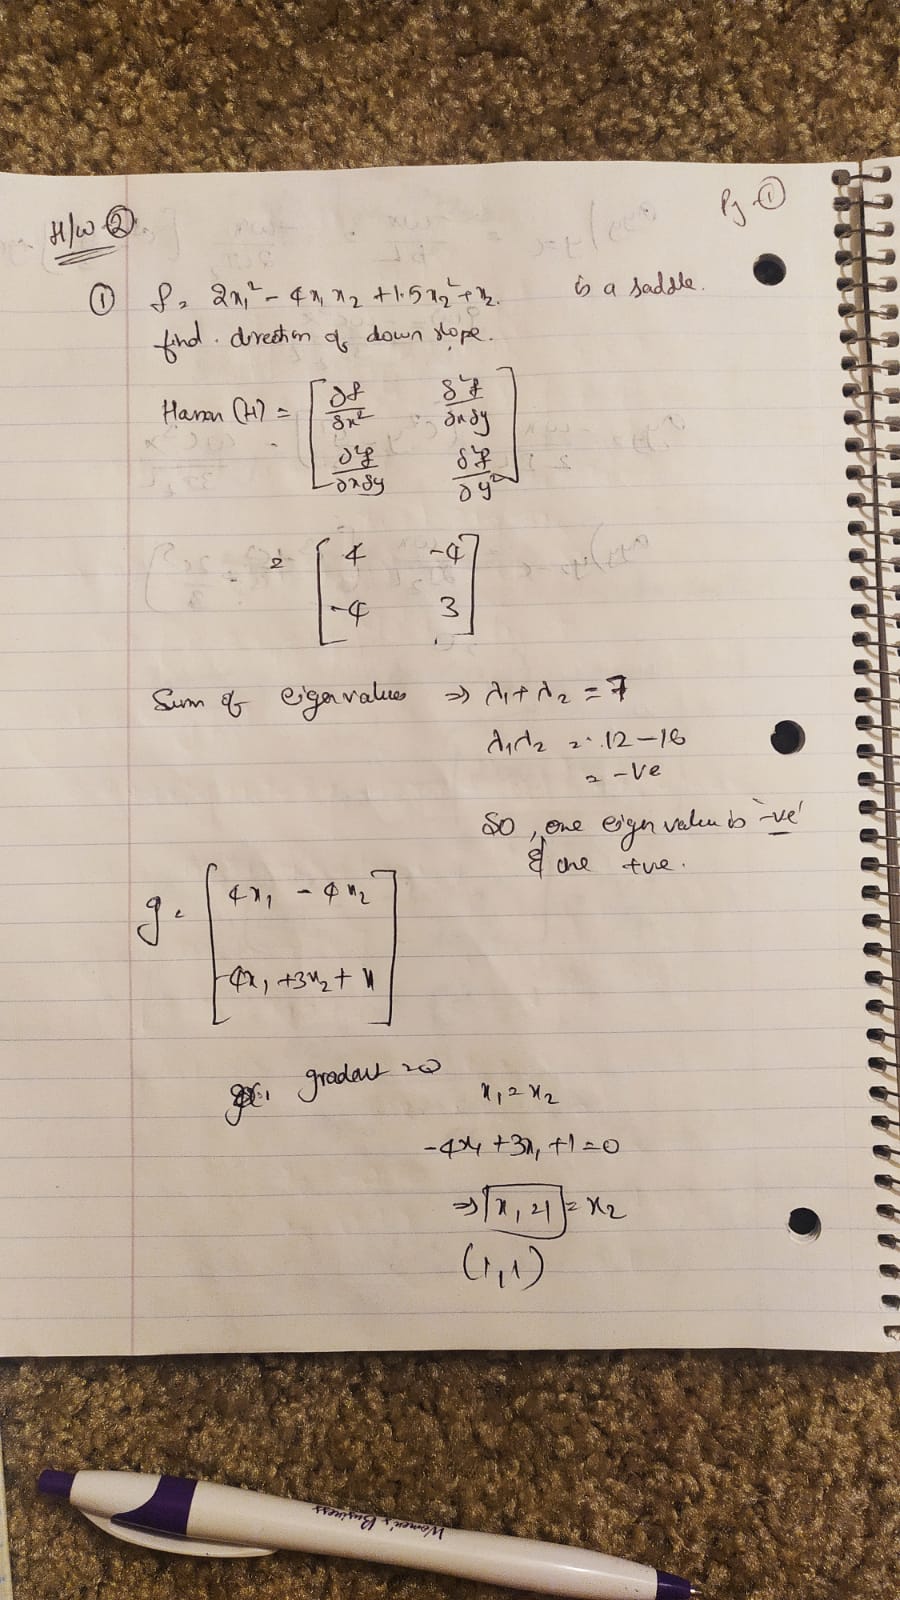 Pg-①
H/W-②
① f = 2x₁² - 4x₁x₂ + 1.5x₂² + x₂. is a saddle.
find direction of down slope.
Hessian (H) = [ ∂f/∂x² ∂²f/∂x∂y
∂²f/∂x∂y ∂²f/∂y² ]
= [ 4 -4
-4 3 ]
Sum of eigenvalues ⇒ λ₁ + λ₂ = 7
λ₁λ₂ = 12-16
= -ve
So, one eigen value is '-ve'
& one +ve.
g = [ 4x₁ - 4x₂
-4x₁ + 3x₂ + 1 ]
gradient = 0
x₁ = x₂
-4x₁ + 3x₁ + 1 = 0
⇒ x₁ = 1 = x₂
(1,1)
Women's Business